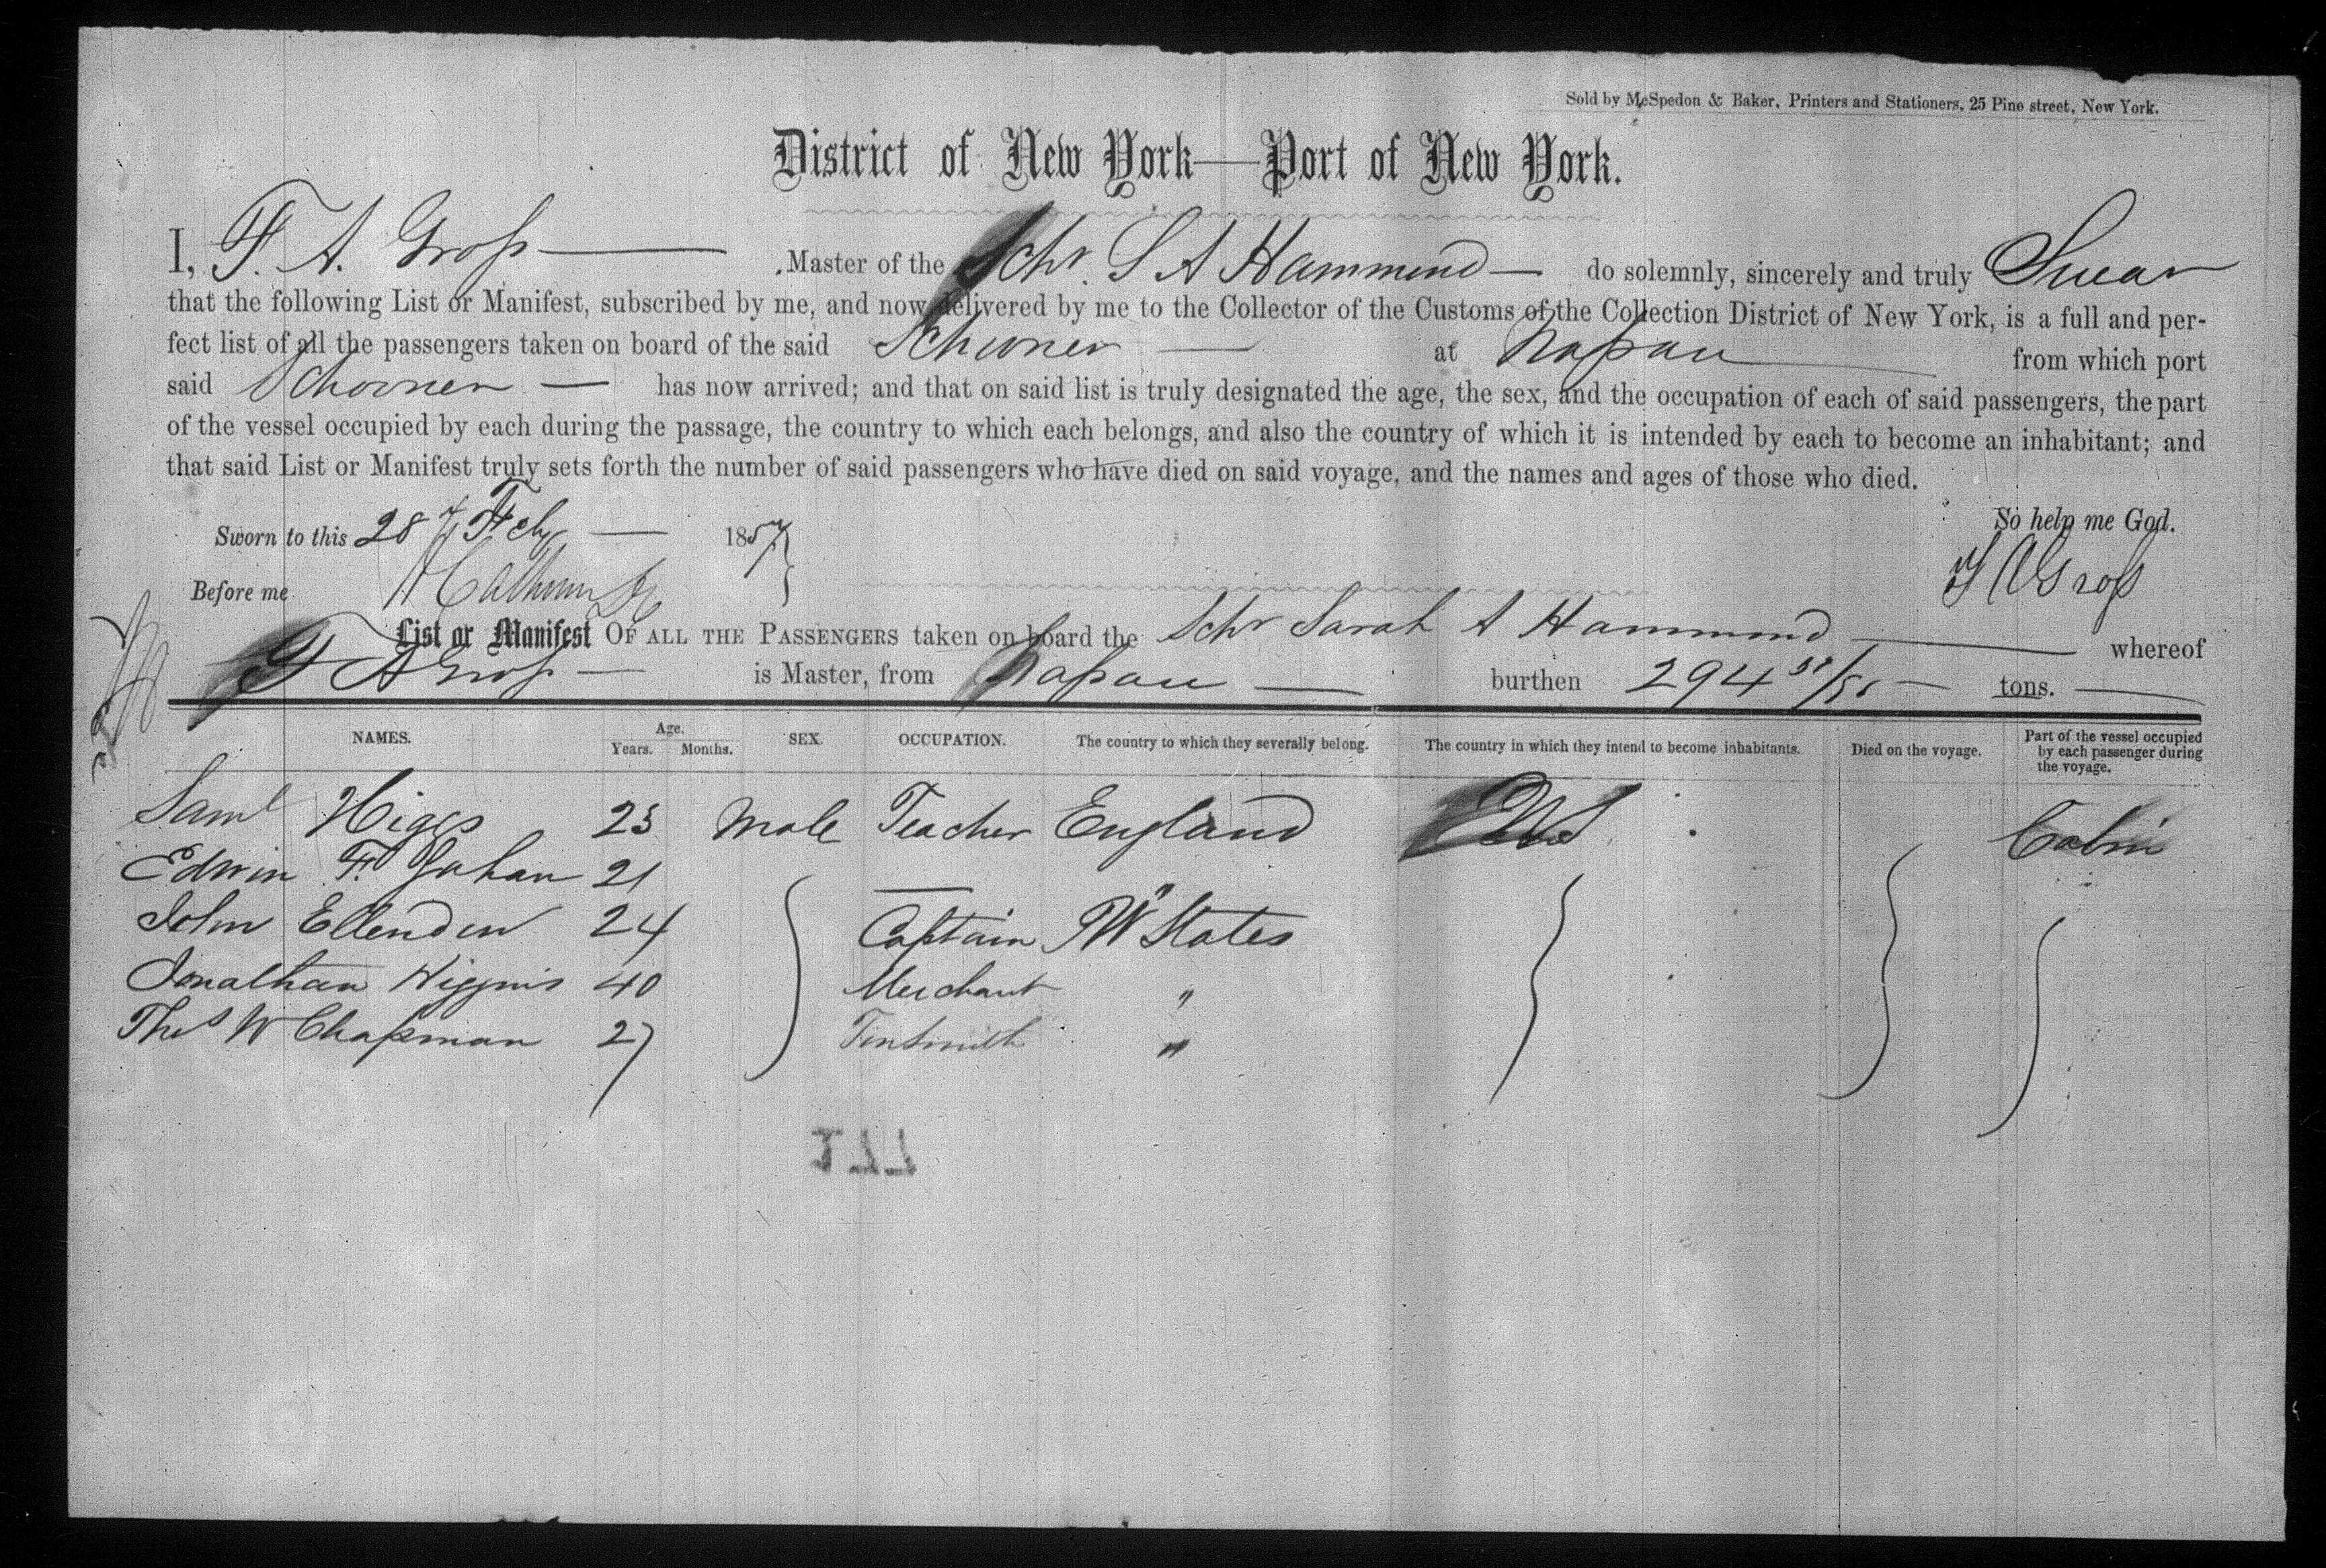 Sold by McSpedon & Baker, Printers and Stationers, 25 Pine street, New York.
District of New York—Port of New York.
I, F. A. Gross Master of the Schr. S A Hammond do solemnly, sincerely and truly Swear
that the following List or Manifest, subscribed by me, and now delivered by me to the Collector of the Customs of the Collection District of New York, is a full and per-
fect list of all the passengers taken on board of the said Schooner at Nassau from which port
said Schooner has now arrived; and that on said list is truly designated the age, the sex, and the occupation of each of said passengers, the part
of the vessel occupied by each during the passage, the country to which each belongs, and also the country of which it is intended by each to become an inhabitant; and
that said List or Manifest truly sets forth the number of said passengers who have died on said voyage, and the names and ages of those who died.
So help me God.
Sworn to this 28 Feby 1857
F A Gross
Before me
List or Manifest OF ALL THE PASSENGERS taken on board the Schr Sarah A Hammond whereof
F A Gross is Master, from Nassau burthen 294 tons.
NAMES. Age. Years. Months. SEX. OCCUPATION. The country to which they severally belong. The country in which they intend to become inhabitants. Died on the voyage. Part of the vessel occupied by each passenger during the voyage.
Saml Higgs 23 Male Teacher England US Cabin
Edwin F. 21 — "
John 24 Captain States
Jonathan Higgins 40 Merchant "
Thos W Chapman 27 Tinsmith "